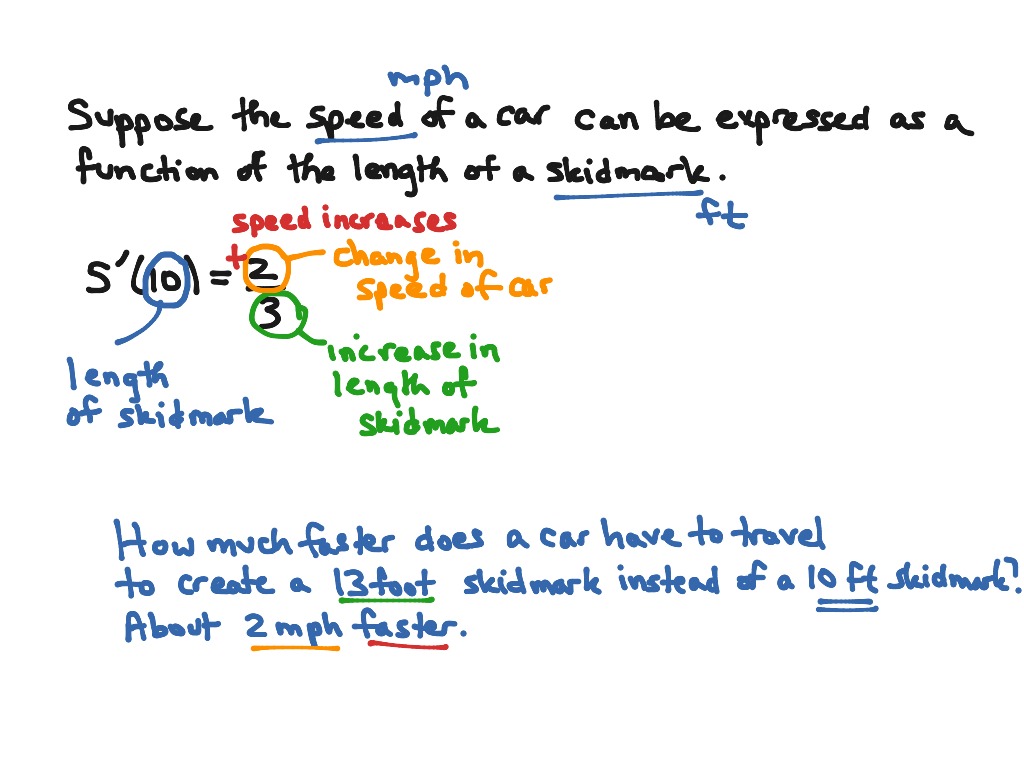 mph
Suppose the speed of a car can be expressed as a
function of the length of a skidmark.
ft
speed increases
S'(10) = +2/3
change in
speed of car
increase in
length of
skidmark
length
of skidmark
How much faster does a car have to travel
to create a 13 foot skidmark instead of a 10 ft skidmark?
About 2 mph faster.